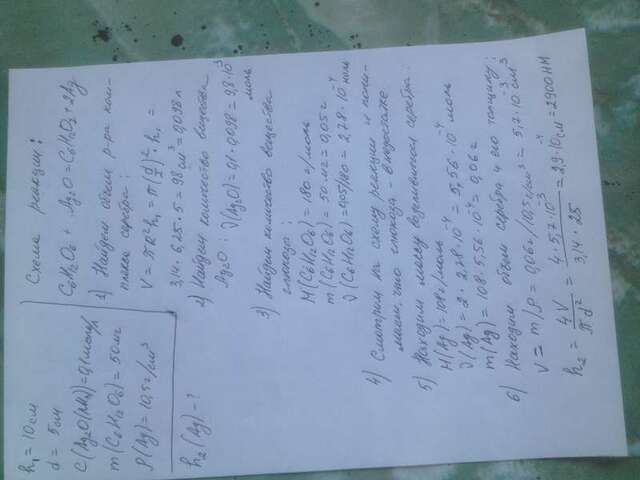 h₁ = 10 см
d = 5 см
C(Ag₂O(NH₃)) = 0,1 моль/л
m(C₆H₁₂O₆) = 50 мг
ρ(Ag) = 10,5 г/см³
h₂(Ag) - ?
Схема реакции:
C₆H₁₂O₆ + Ag₂O = C₆H₁₂O₇ + 2Ag
1) Найдем объем р-ра ком-
плекса серебра:
V = πR²h₁ = π(d/2)²·h₁ =
3,14·6,25·5 = 98 см³ = 0,098 л
2) Найдем количество вещества
Ag₂O: ν(Ag₂O) = 0,1·0,098 = 9,8·10⁻³
моль
3) Найдем количество вещества
глюкоза:
M(C₆H₁₂O₆) = 180 г/моль
m(C₆H₁₂O₆) = 50 мг = 0,05 г
ν(C₆H₁₂O₆) = 0,05/180 = 2,78·10⁻⁴ моль
4) Смотрим на схему реакции и пони-
маем, что глюкоза - в недостатке
5) Находим массу выделившегося серебра:
M(Ag) = 108 г/моль
ν(Ag) = 2·2,78·10⁻⁴ = 5,56·10⁻⁴ моль
m(Ag) = 108·5,56·10⁻⁴ = 0,06 г
6) Находим объем серебра и его толщину:
V = m/ρ = 0,06 г/10,5 г/см³ = 5,7·10⁻³ см³
h₂ = 4V/πd² = 4·5,7·10⁻³/3,14·25 = 2,9·10⁻⁴ см = 2900 нм